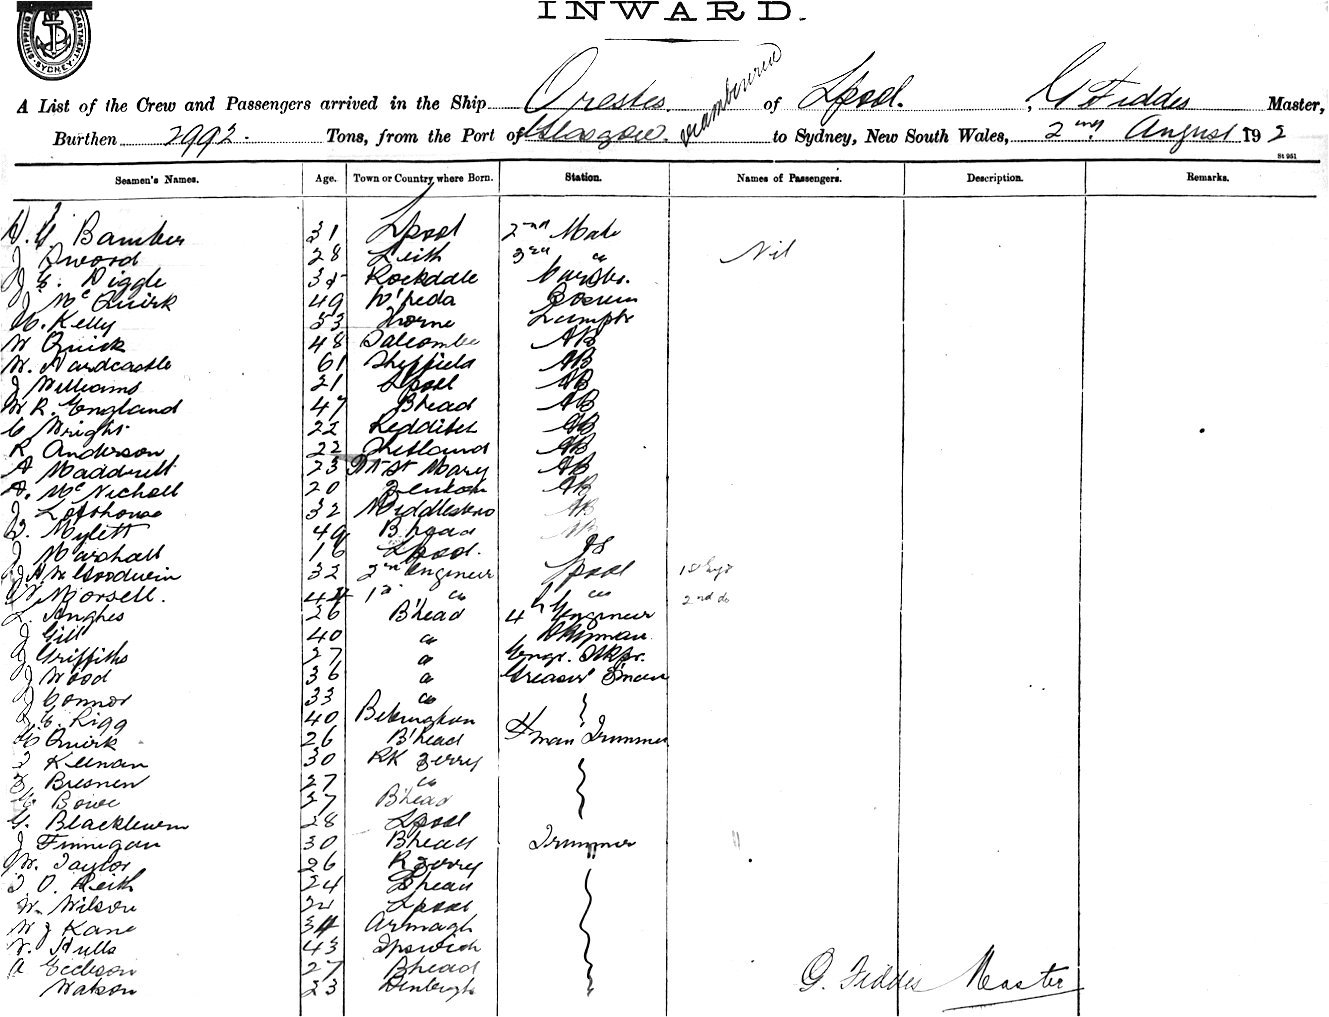 INWARD.
SHIPPING DEPARTMENT SYDNEY
A List of the Crew and Passengers arrived in the Ship Orestes of Lpool. , G Fiddes Master,
Burthen 2992. Tons, from the Port of Glasgow. to Sydney, New South Wales, 2nd August 192
St 951
Seamen's Names. Age. Town or Country where Born. Station. Names of Passengers. Description. Remarks.
Bamber 31 Lpool 2nd Mate
J Sword 28 Leith 3rd " Nil
Diggle Rockdale
J McQuirk 49 Bosun
Kelly 53 Thorne Lamptr
W Quick 48 Salcombe AB
W. Hardcastle 61 Sheffield AB
J Williams 21 Lpool AB
W R. England 47 Bhead AB
C Wright 22 Redditch AB
R Anderson 22 Shetland AB
A Maddrell 23 St Mary AB
A. McNicholl 20 AB
J Lofthouse 32 Middlesbro AB
Mylett 49 Bhead AB
J Marshall 16 Lpool. OS
Goodwin 32 2nd Engineer Lpool
Morsell. 44 1st " " 2nd do
L. Hughes 26 B'head 4 Engineer
J Gill 40 "
J Griffiths 27 " Engr. Stkpr.
J Wood 36 " Greaser F'man
J Connor 33 "
Rigg 40 Bebington
Quirk 26 B'head F'man Trimmer
T Keenan 30 RK Ferry
Bresnen 27 "
Bowe 37 Bhead
G. Blackburn 28 Lpool
J Finnegan 30 Bhead Trimmer "
W. Taylor 26 R Ferry
T O. Keith 24 Bhead
W. Wilson 21 Lpool
W J Kane 34 Armagh
Hulls 43 Ipswich
A Eccleson 27 Bhead
Watson 23 Denbigh
G. Fiddes Master